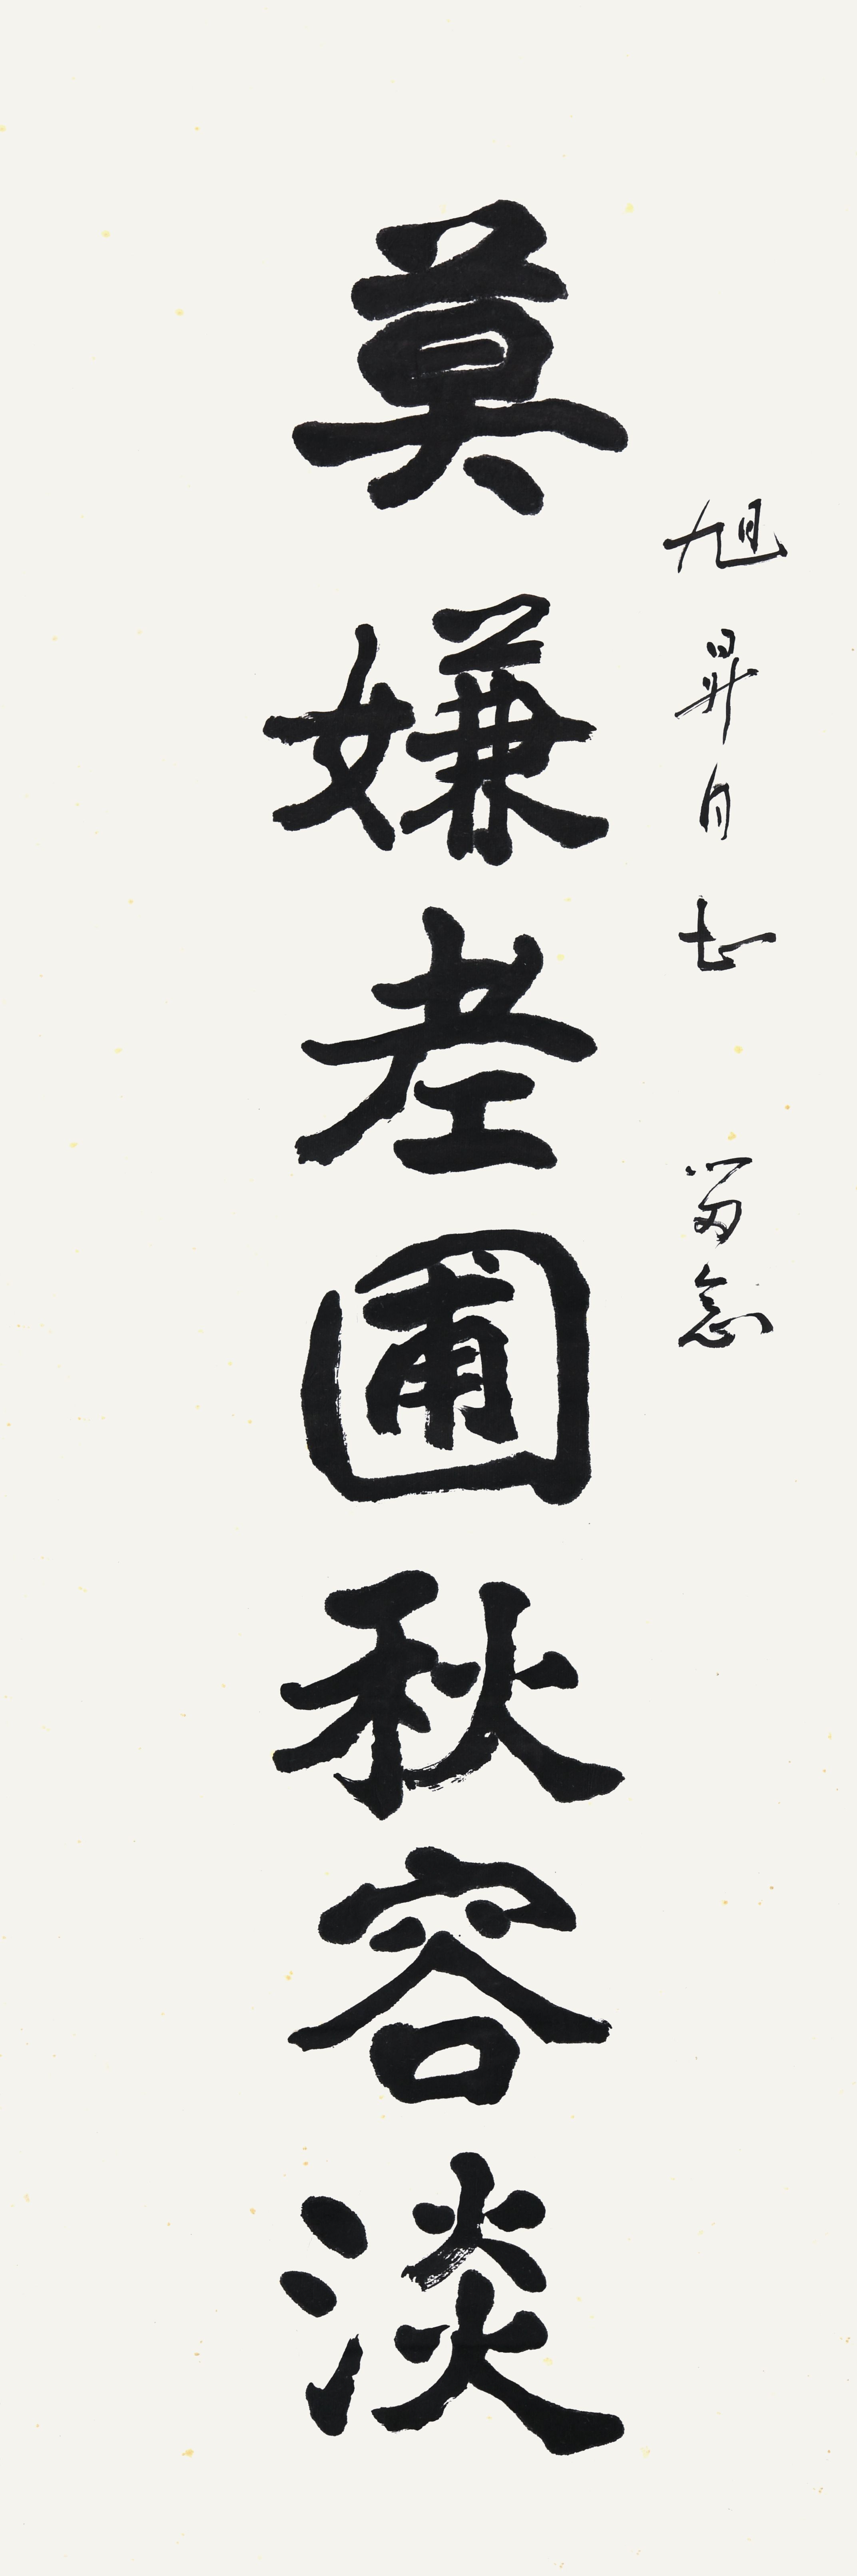 旭昇同志 留念
莫嫌老圃秋容淡